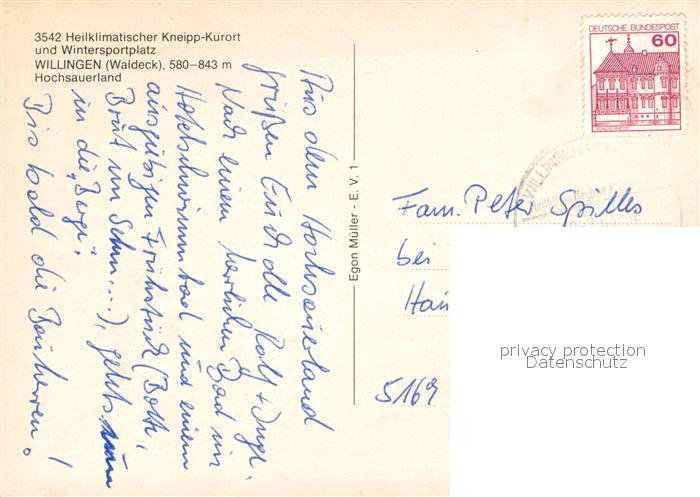 3542 Heilklimatischer Kneipp-Kurort
und Wintersportplatz
WILLINGEN (Waldeck), 580–843 m
Hochsauerland
Aus dem Hochsauerland
grüßen Euch alle Rolf + Inge.
Nach einem herrlichen Bad im
Hotelschwimmbad und einem
ausgiebigen Frühstück (Bottr,
Brot um Sehn...), gehts zum
in die „Berge“.
Bis bald die Bauherren!
Egon Müller - E. V. 1
DEUTSCHE BUNDESPOST
60
WILLINGEN
Fam. Peter Spilles
bei
5169
privacy protection
Datenschutz